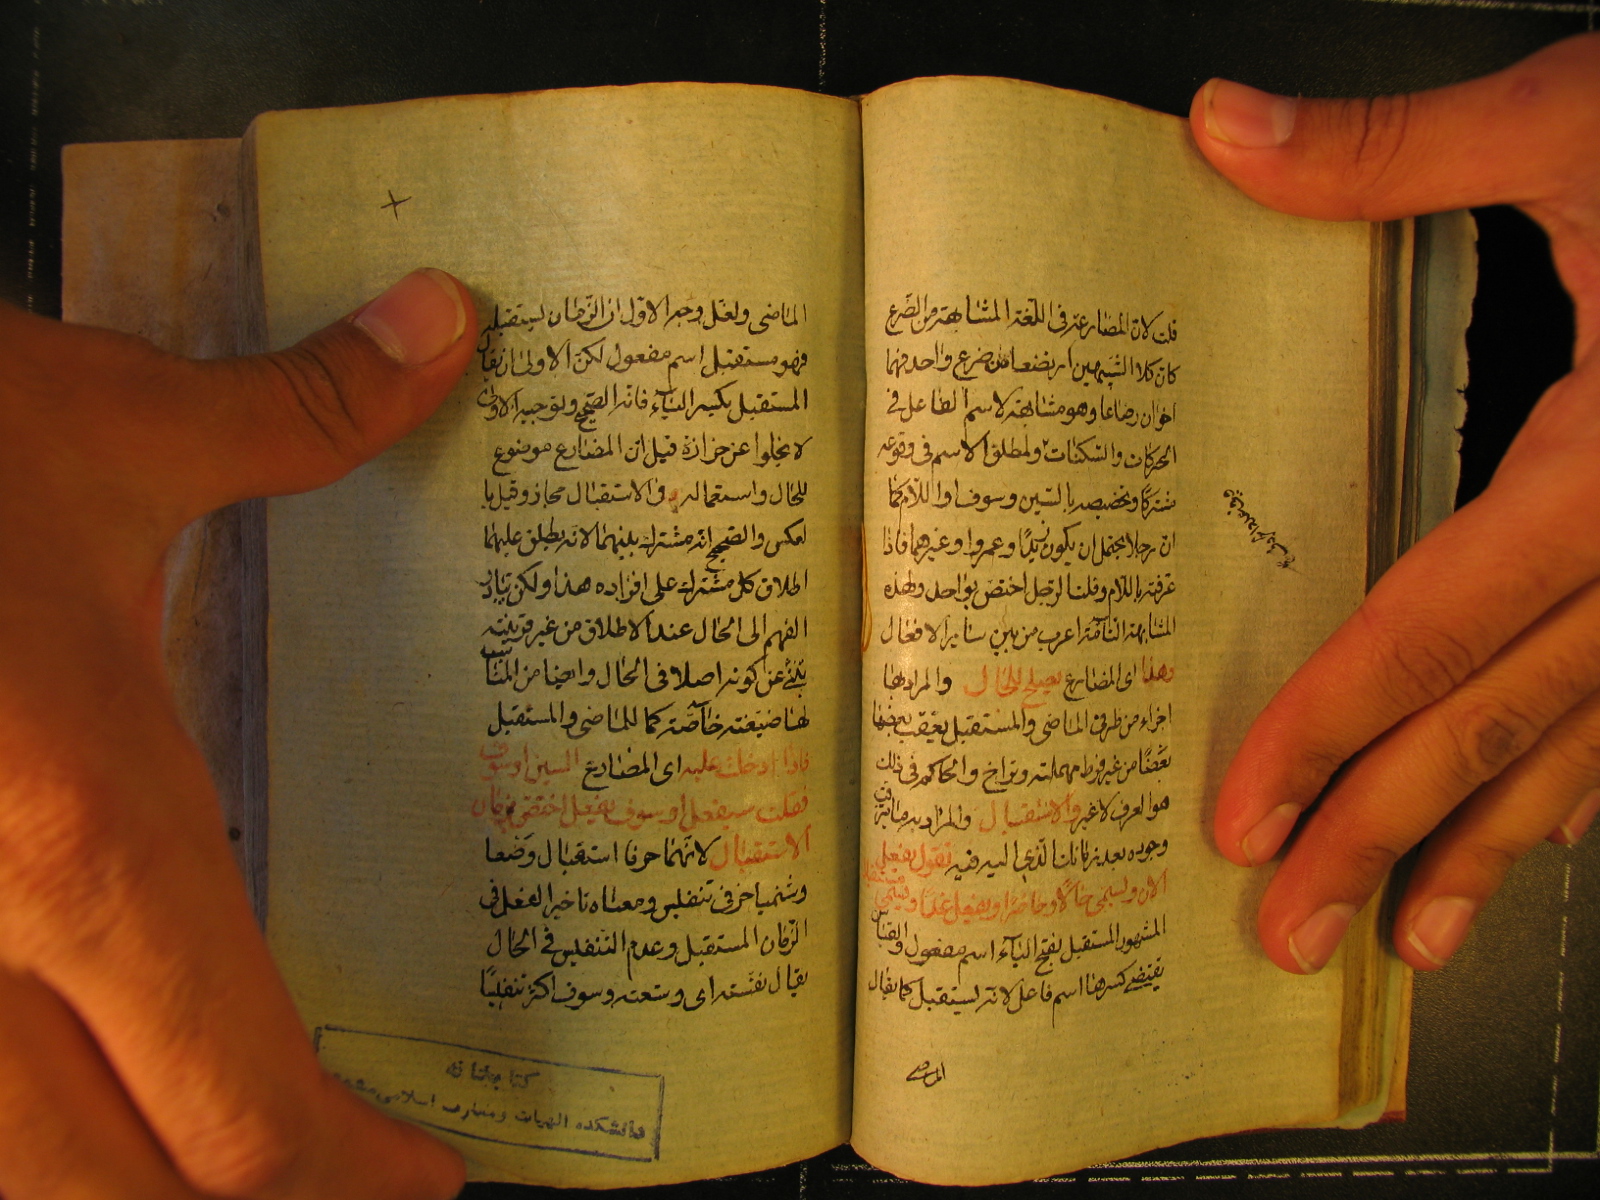 قلت لان المضارعة فى اللغة المشابهة من الضرع
كان كلا الشبيهين ارتضعا من ضرع واحد فهما
اخوان رضاعا وهو مشابهة لاسم الفاعل فى
الحركات والسكنات ولمطلق الاسم فى وقوعه
مشتركا وتخصيصه بالسين وسوف او اللام كما
ان رجلا يحتمل ان يكون زيدا وعمروا وغيرهما فاذا
عرفته باللام وقلت الرجل اختص بواحد ولهذه
المشابهة التامة اعرب من بين سائر الافعال
وهذا اى المضارع يصلح للحال والمراد بها
اجزاء من طرفى الماضى والمستقبل يعقب بعضها
بعضا من غير فرط مهملة وتراخ والحاكم فى ذلك
هو العرف لا غير والاستقبال والمراد به ما يترقب
وجوده بعد زمانك الذى انت فيه تقول يفعل
الان ويسمى حالا وحاضرا ويفعل غدا ويسمى مستقبلا
المشهور المستقبل بفتح الباء اسم مفعول والقياس
يقتضى كسرها اسم فاعل لانه يستقبل كما يقال
الماضى
الماضى ولعل وجه الاول ان الزمان يستقبله
فهو مستقبل اسم مفعول لكن الاولى ان يقال
المستقبل بكسر الباء فانه الصحيح وتوجيه الاول
لا يخلوا عن حزازة قيل ان المضارع موضوع
للحال واستعماله فى الاستقبال مجاز وقيل با
لعكس والصحيح انه مشترك بينهما لانه يطلق عليهما
اطلاق كل مشترك على افراده هذا ولكن تبادر
الفهم الى الحال عند الاطلاق من غير قرينة
ينبئ عن كونه اصلا فى الحال وايضا من المناسب
لها صيغة خاصة كما للماضى والمستقبل
فاذا ادخلت عليه اى المضارع السين او سوف
فقلت سيفعل او سوف يفعل اختص بزمان
الاستقبال لانهما حرفا استقبال وضعا
وسميا حرفى تنفيس ومعناه تاخير الفعل فى
الزمان المستقبل وعدم التنفيس فى الحال
يقال نفسته اى وسعته وسوف اكثر تنفيسا
كتابخانه
دانشكده الهيات ومعارف اسلامى